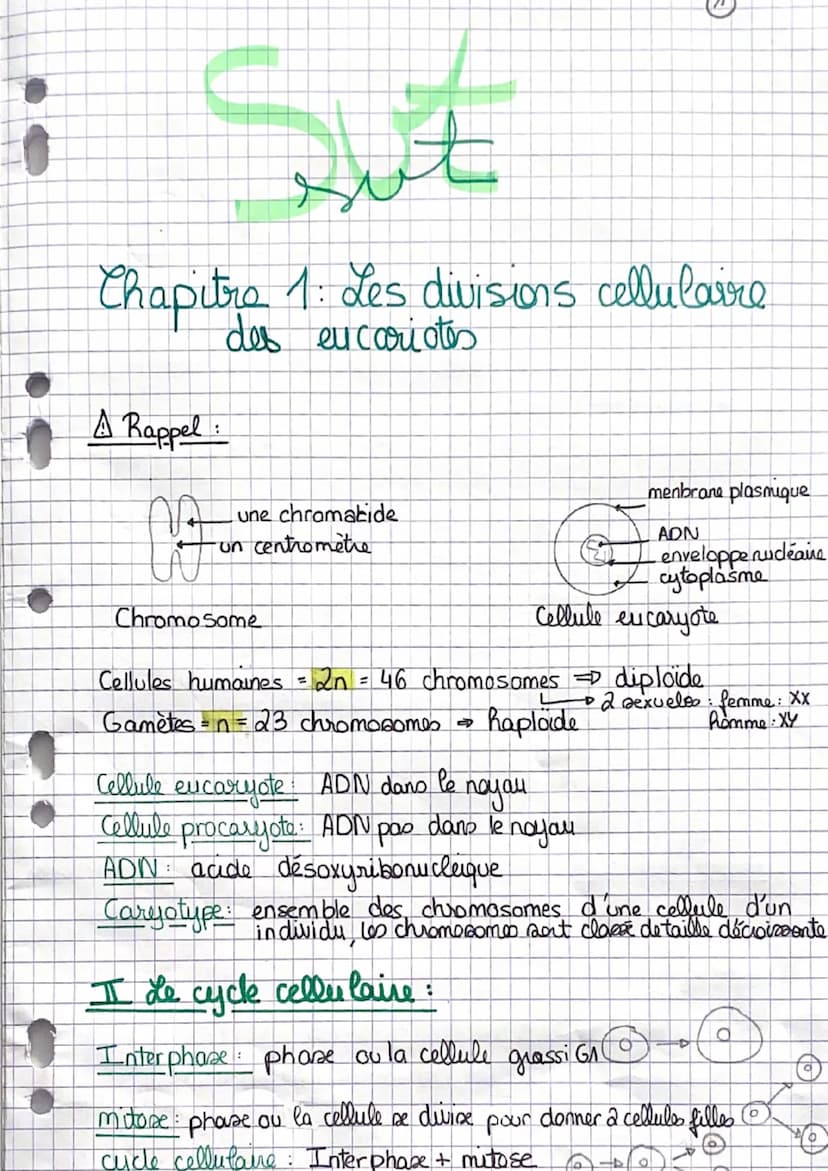 Svt
svt
Chapitre 1: Les divisions cellulaire
des eucariotes
⚠ Rappel :
menbrane plasmique
une chromatide
ADN
un centromètre
enveloppe nucléaire
cytoplasme
Chromosome
Cellule eucaryote
Cellules humaines = 2n = 46 chromosomes ⇒ diploïde
2 sexueles : femme : XX
Gamètes = n = 23 chromosomes → haploïde
homme : XY
Cellule eucaryote : ADN dans le noyau
Cellule procaryote : ADN pas dans le noyau
ADN : acide désoxyribonucleique
Caryotype : ensemble des chromosomes d'une cellule d'un
individu, les chromosomes sont classé de taille décroissante
II Le cycle cellulaire :
Interphase : phase ou la cellule grassi G1
mitose : phase ou la cellule se divise pour donner 2 cellules filles
cycle cellulaire : Interphase + mitose